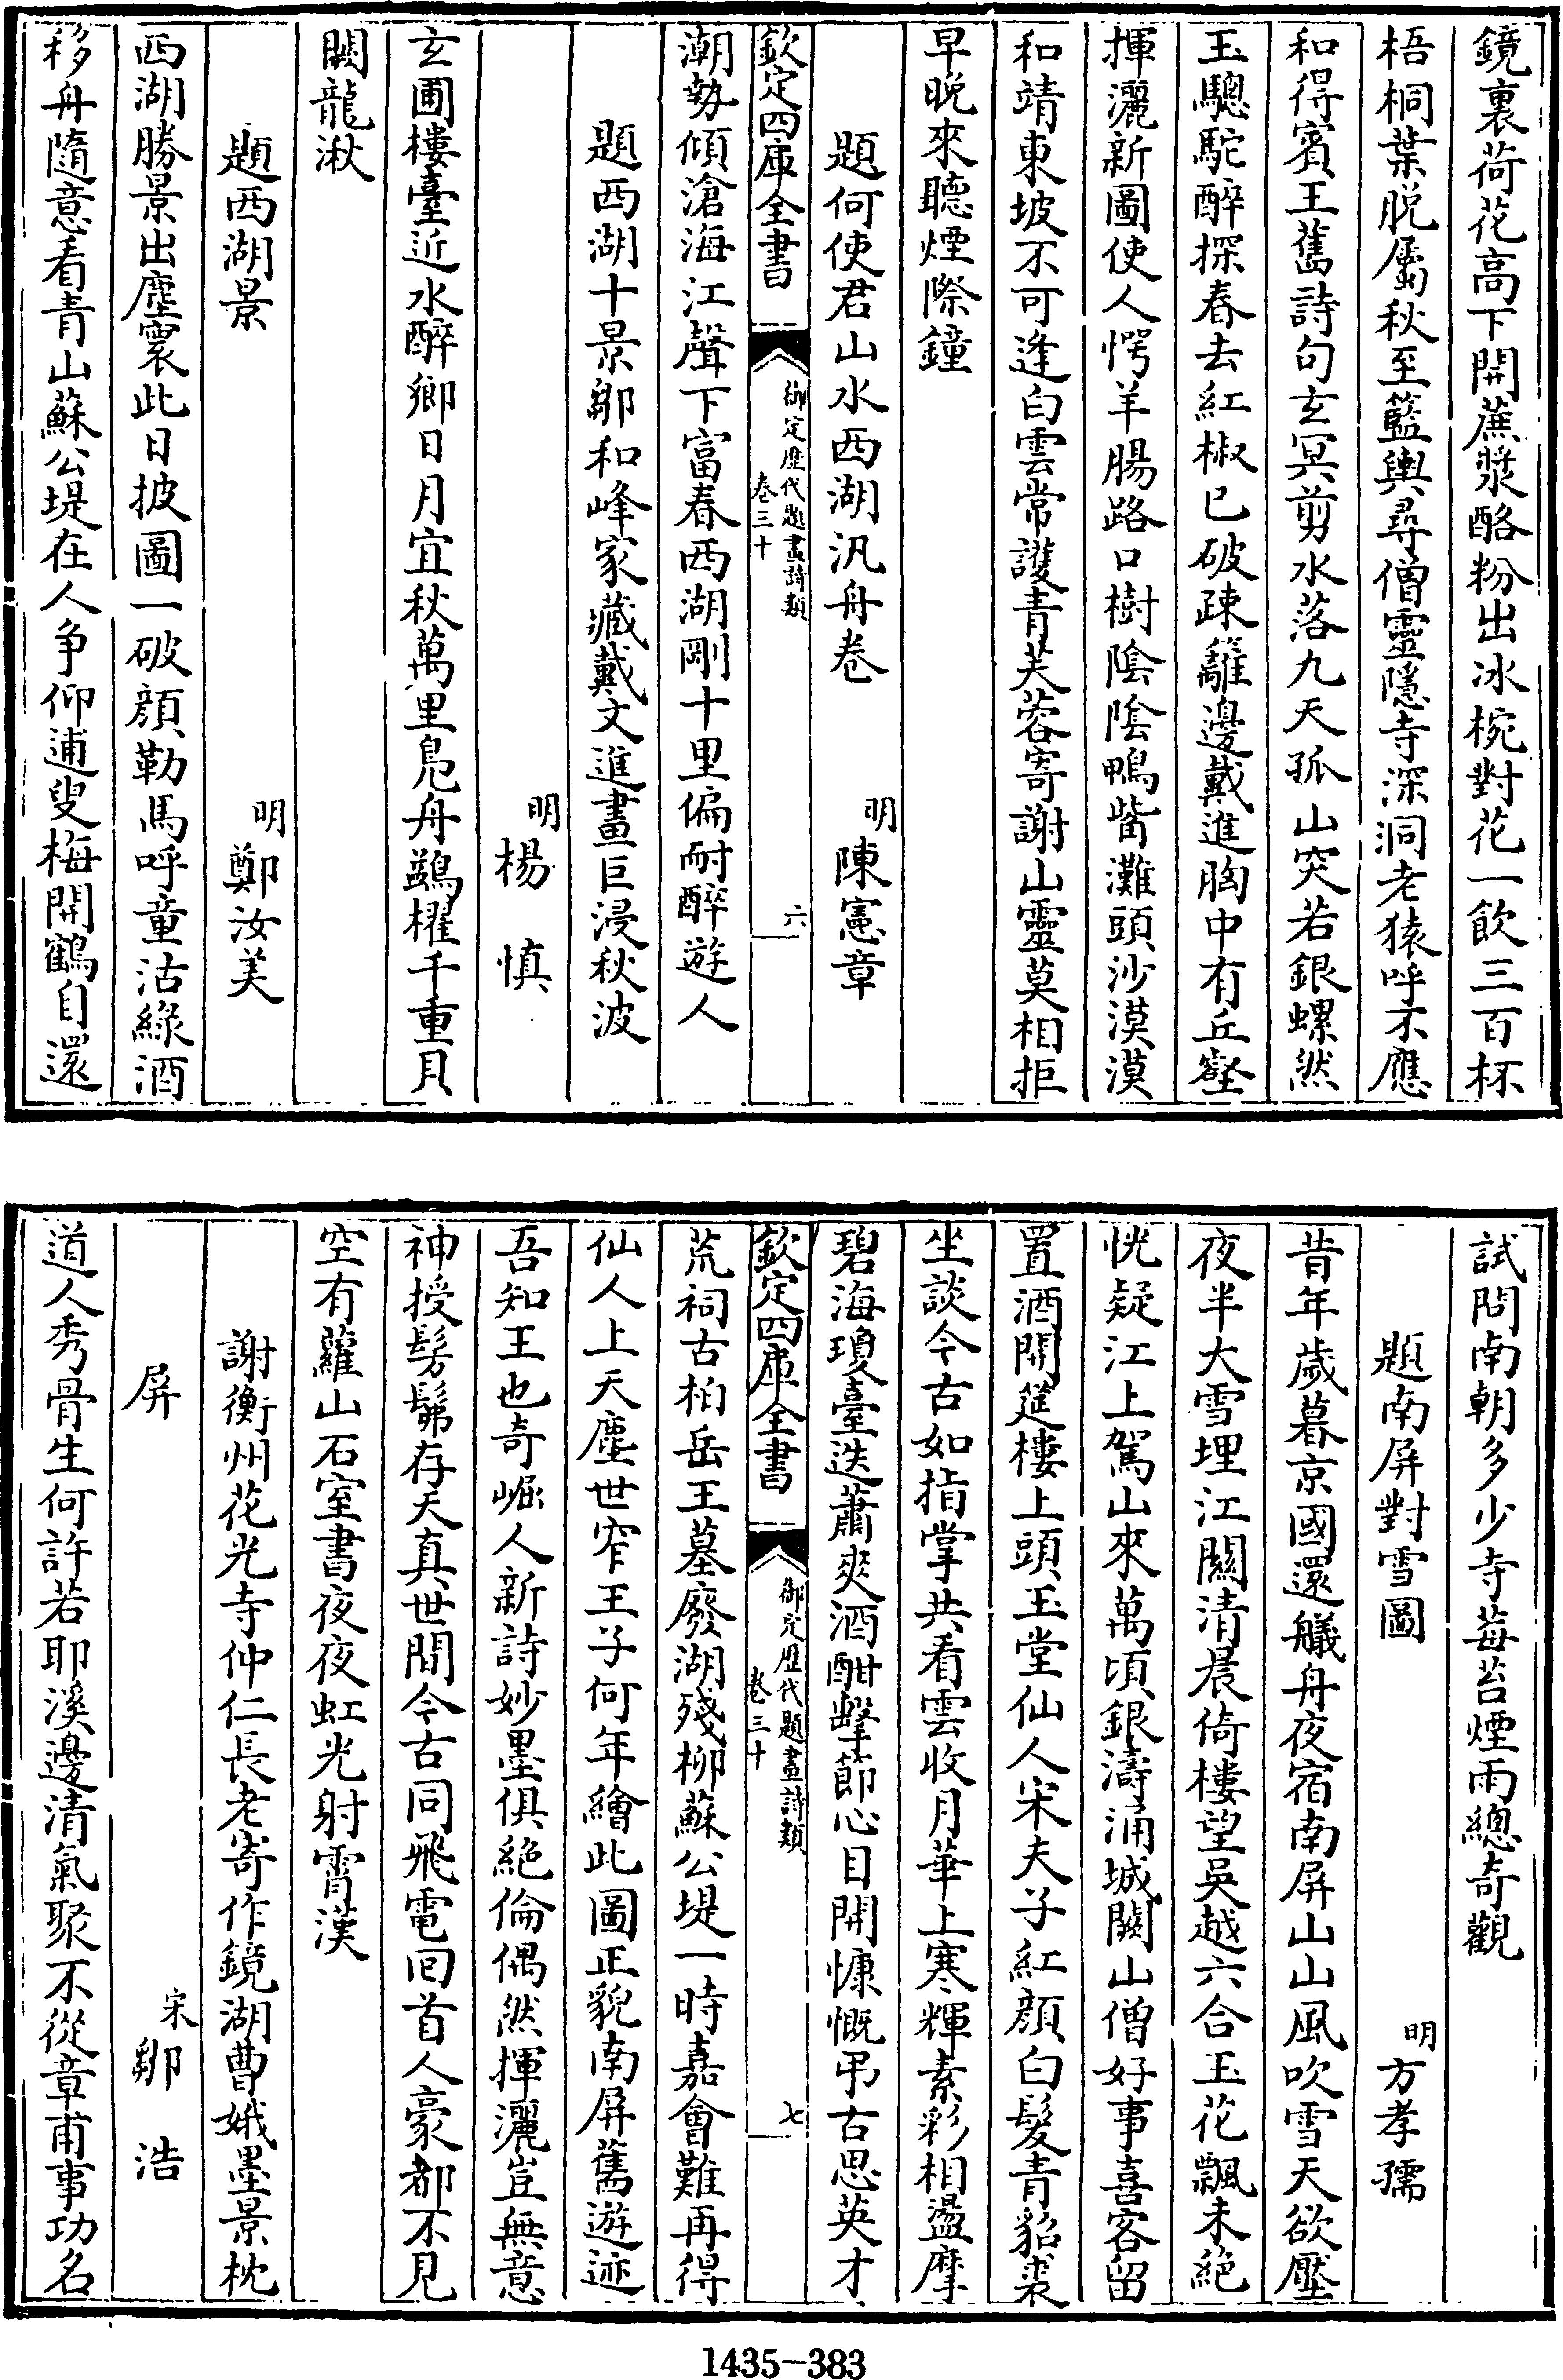 鏡裏荷花高下開蔗漿酪粉出冰椀對花一飲三百杯
梧桐葉脱屬秋至籃輿尋僧靈隱寺深洞老猿呼不應
和得賓王舊詩句玄冥剪水落九天孤山突若銀螺然
玉驄駝醉探春去紅椒已破疎籬邊戴進胸中有丘壑
揮灑新圖使人愕羊腸路口樹陰陰鴨觜灘頭沙漠漠
和靖東坡不可逢白雲常護青芙蓉寄謝山靈莫相拒
早晚來聽煙際鐘
題何使君山水西湖汎舟卷
明陳憲章
欽定四庫全書
御定歷代題畫詩類
卷三十
六
潮勢傾滄海江聲下富春西湖剛十里偏耐醉遊人
題西湖十景鄒和峰家藏戴文進畫巨浸秋波
明楊慎
玄圃樓臺近水醉鄉日月宜秋萬里鳧舟鷁櫂千重貝
闕龍湫
題西湖景
明鄭汝美
西湖勝景出塵寰此日披圖一破顔勒馬呼童沽綠酒
移舟隨意看青山蘇公堤在人争仰逋叟梅開鶴自還
試問南朝多少寺莓苔煙雨總奇觀
題南屏對雪圖
明方孝孺
昔年歲暮京國還艤舟夜宿南屏山山風吹雪天欲壓
夜半大雪埋江關清晨倚樓望吳越六合玉花飄未絶
恍疑江上駕山來萬頃銀濤涌城闕山僧好事喜客留
置酒開筵樓上頭玉堂仙人宋夫子紅顔白髮青貂裘
坐談今古如指掌共看雲收月華上寒輝素彩相盪摩
碧海瓊臺迭蕭爽酒酣擊節心目開慷慨弔古思英才
欽定四庫全書
御定歷代題畫詩類
卷三十
七
荒祠古柏岳王墓廢湖殘柳蘇公堤一時嘉會難再得
仙人上天塵世窄王子何年繪此圖正貌南屏舊遊迹
吾知王也奇崛人新詩妙墨俱絶倫偶然揮灑豈無意
神授髣髴存天真世間今古同飛電回首人豪都不見
空有蘿山石室書夜夜虹光射霄漢
謝衡州花光寺仲仁長老寄作鏡湖曹娥墨景枕
屏
宋鄒浩
道人秀骨生何許若耶溪邊清氣聚不從章甫事功名
1435-383